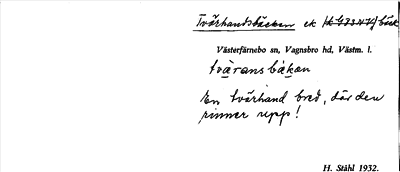 Tvärhandsbäcken ek bäck
Västerfärnebo sn, Vagnsbro hd, Västm. l.
tvä̱ransbä̱kan
En tvärhand bred, där den
rinner upp!
H. Ståhl 1932.